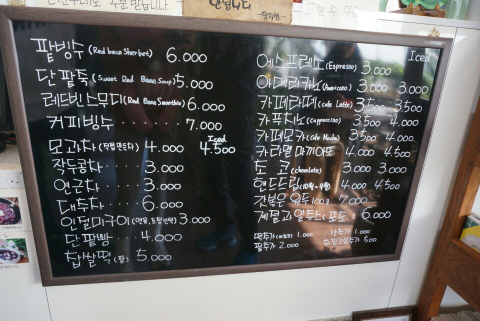 팥빙수 (Red bean Sherbet) 6.000
단팥죽 (Sweet Red Bean Soup) 5.000
레드빈스무디 (Red Bean Smoothie) 6.000
커피빙수 7.000
Iced
모과차 4.000 4.500
작두콩차 3.000
연근차 3.000
대추차 6.000
인절미구이 3.000
단팥빵 4.000
찹쌀떡 5.000
Iced
에스프레소 (Espresso) 3.000
아메리카노 (Americano) 3.000 3.000
카페라떼 (Cafe Latte) 3.500 3.500
카푸치노 (Cappuccino) 3.500 4.000
카페모카 (Cafe Mocha) 3.500 4.000
카라멜 마끼아또 4.000 4.500
초코 (chocolate) 3.000 3.000
핸드드립 4.000 4.500
갓볶은 원두 100g 7.000
계절과일쥬스 (포도) 6.000
떡추가 1.000
팥추가 2.000
1.000
500